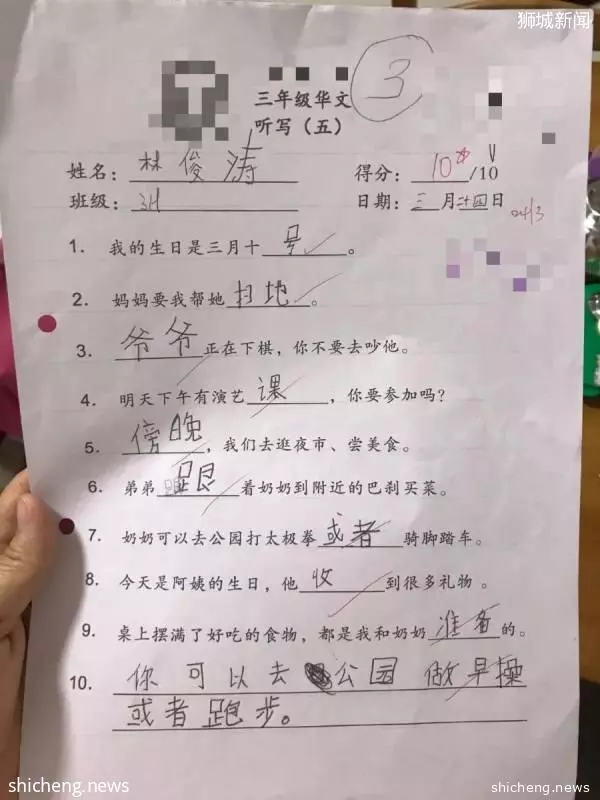 狮城新闻
三年级华文
3
听写（五）
姓名：林俊涛 得分：10/10
班级：3H 日期：三月二十四日
24/3
1. 我的生日是三月十号。
2. 妈妈要我帮她扫地。
3. 爷爷正在下棋，你不要去吵他。
4. 明天下午有演艺课，你要参加吗？
5. 傍晚，我们去逛夜市、尝美食。
6. 弟弟跟着奶奶到附近的巴刹买菜。
7. 奶奶可以去公园打太极拳或者骑脚踏车。
8. 今天是阿姨的生日，他收到很多礼物。
9. 桌上摆满了好吃的食物，都是我和奶奶准备的。
10. 你可以去公园做早操
或者跑步。
shicheng.news
shicheng.news